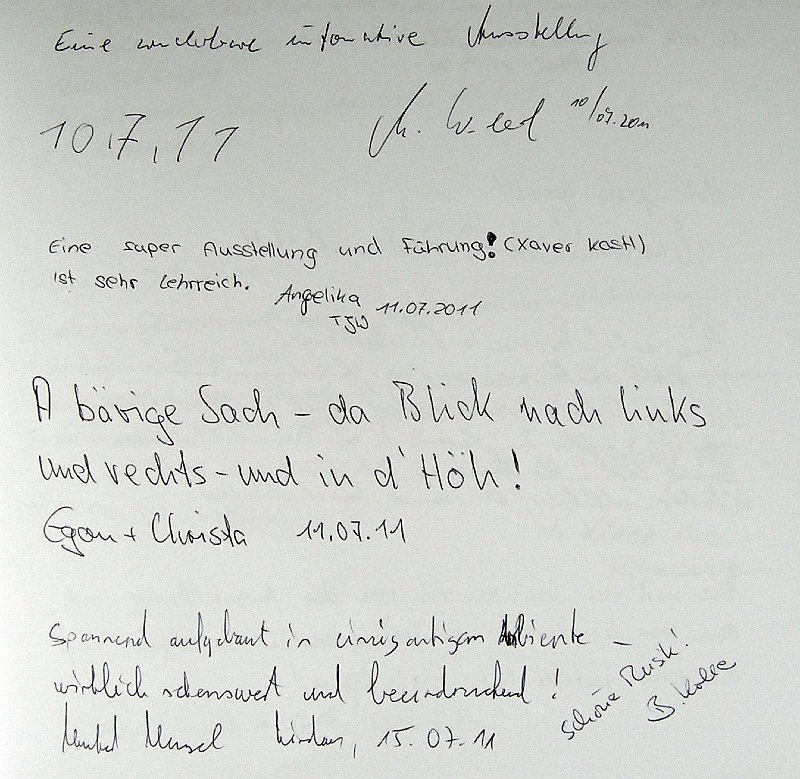 Eine wunderbare informative Ausstellung
10.7.11
10/07.2011
Eine super Ausstellung und Führung! (Xaver Kastl)
ist sehr lehrreich.
Angelika 11.07.2011
TJW
A bärige Sach - da Blick nach links
und rechts - und in d' Höh!
Egon + Christa 11.07.11
Spannend aufgebaut in einzigartigem Ambiente -
wirklich sehenswert und beeindruckend!
Lindau, 15.07.11
schöne Musik!
B.